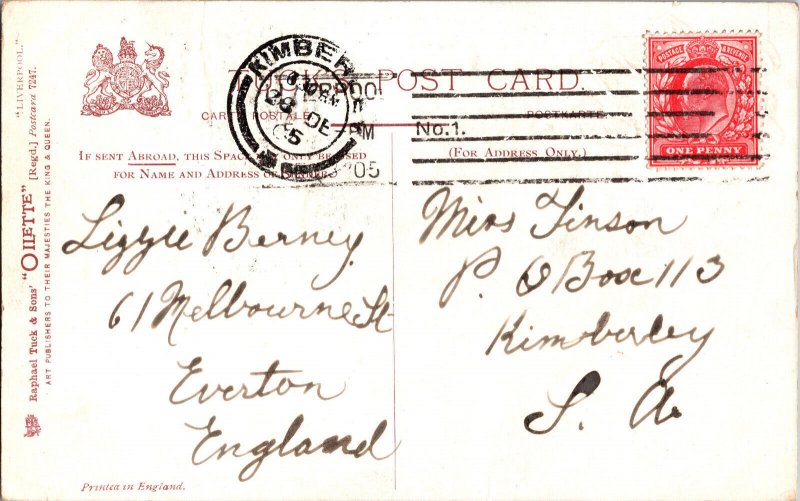 "LIVERPOOL."
Raphael Tuck & Sons' "OILETTE" [Regd.] Postcard 7247.
ART PUBLISHERS TO THEIR MAJESTIES THE KING & QUEEN.
TUCK'S POST CARD.
CARTE POSTALE
POSTKARTE
IF SENT ABROAD, THIS SPACE MAY ONLY BE USED
FOR NAME AND ADDRESS OF SENDER.
(FOR ADDRESS ONLY.)
KIMBERLEY
28 DE
05
PM
No. 1.
05
POSTAGE & REVENUE
ONE PENNY
Lizzie Berney
61 Melbourne St
Everton
England
Miss Tinson
P. O Box 113
Kimberley
S. A.
Printed in England.